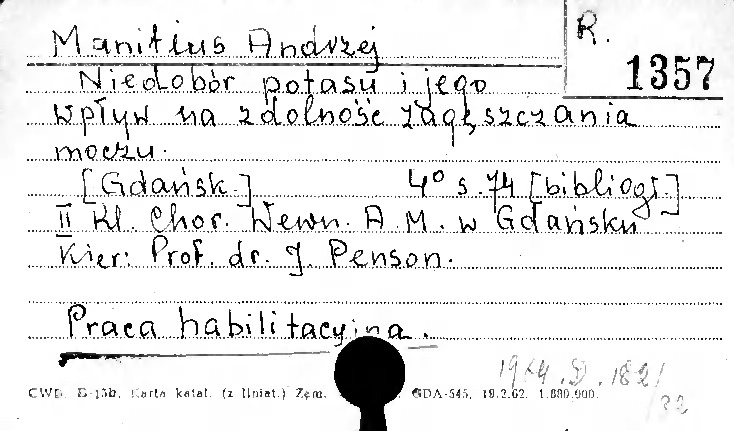 Manitius Andrzej
R.
1357
Niedobór potasu i jego
wpływ na zdolność zagęszczania
moczu.
[Gdańsk.] 4° s. 74 [bibliogr.]
II Kl. Chor. Wewn. A. M. w Gdańsku
Kier: Prof. dr. J. Penson.
Praca habilitacyjna.
1964.D.182/
/32
CWD. E-15b. Karta katal. (z liniat.) Zam. GDA-545. 19.2.62. 1.880.000.